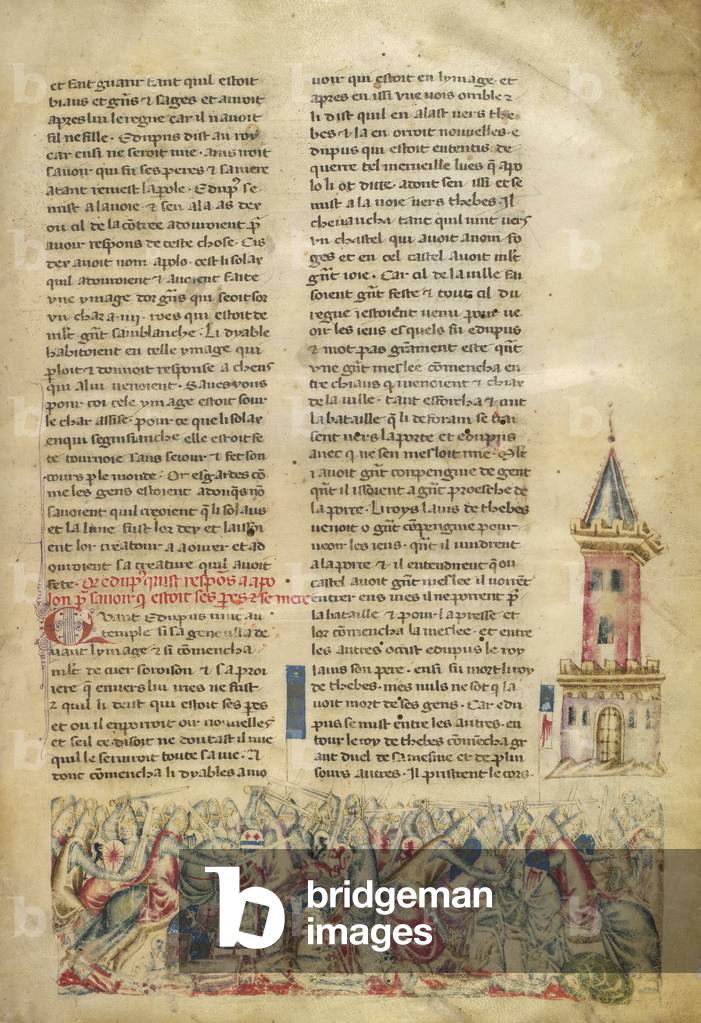 et fait guant tant quil estoit
biaus et gñs ⁊ sages et auroit
apres lui le regne car il nauoit
fil ne fille · Edipus dist au roy
car ensi ne seroit mie · ains iroit
sauoir qui fu ses peres ⁊ sa mere
atant remest la pole · Edipꝰ se
mist a la uoie ⁊ sen ala as dex
ou cil de la cõtree adouroient ꝑ
auoir respons de ceste chose · Cis
dex auoit nom apolo · cest li solax
quil adouroient ⁊ auoient faite
vne ymage dor gñs qui seoit sor
vn char a · iiii · roes qui estoit de
mlt gñt samblanche · Li dyable
habitoient en celle ymage qui
ploit ⁊ donoit response a chens
qui a lui uenoient · Saues vous
pour coi cele ymage estoit sour
le char assise · pour ce que li solax
enqui
te tournoie sans seiour ⁊ fet son
cours ꝑ le monde · Or esgardes cõ
me les gens estoient adonqs nõ
sauoient qui creoient q̃ li solaus
et la lune fust lor dex et laissi
ent lor creatour a aourer et ad
ouroient sa creature quil auoit
fete · Q̃ edipꝰ quist respõs a apo
lon ꝑ sauoir q̃ estoit ses ꝑes ⁊ se mere
Quant Edipus uint au
temple si sagenoulla de
uant lymage ⁊ si comencha
mlt de cuer soroison ⁊ sa proi
iere q̃ enuers lui mes ne fust
⁊ quil li deist qui estoit ses ꝑes
et ou il en porroit oir nouuelles
et seil ce disoit ne doutast il mie
quil le seruiroit toute sa uie · A
dont cõmencha li dyables a mo
uoir qui estoit en lymage · et
apres en issi vne uois orrible ⁊
li dist quil en alast uers the
bes ⁊ la en orroit nouuelles · e
dipus qui estoit ententis de
querre tel merueille lues q̃ apo
lo li ot disse · adont sen issi et se
mist a la uoie uers thebes · Il
cheuaucha tant quil uint uers
vn chastel qui auoit a nom fo
ges et en cel castel auoit mlt
gñt ioie · Car cil de la uille fai
soient gñt feste ⁊ tout cil du
regne i estoient uenu pour ue
oir les ieus esquels fu edipus
⁊ mot pas grãment este qñt
vne gñt meslee cõmencha en
tre chiaus q̃ uenoient ⁊ chiax
de la uille · tant esforcha ⁊ crut
la bataille q̃ li deforain se trai
sent uers la porte et edipus
auec q̃ ne sen mesloit mie · Mlt
i auoit gñt conpengnie de gent
qñt il issoient a gñt proesche de
la porte · Li roys laius de thebes
uenoit o gñt cõpengnie pour
ueoir les ieus · qñt il uindrent
a la porte ⁊ il entendirent q̃ ou
castel auoit gñt meslee il uorrẽt
entrer ens mes il ne porent ꝑ
la bataille ⁊ pour la presse et
lor cõmencha la meslee · et entre
les autres ocist edipus le roy
laius son pere · ensi fu mort li roy
de thebes · mes nuls ne sot q̃ la
uoit mort de ses gens · Car edi
pus se mist entre les autres · en
tour le roy de thebes cõmẽcha gr
ant duel de sa mesine et de plui
sours autres · Il pristrent le cors ·
b bridgeman
images